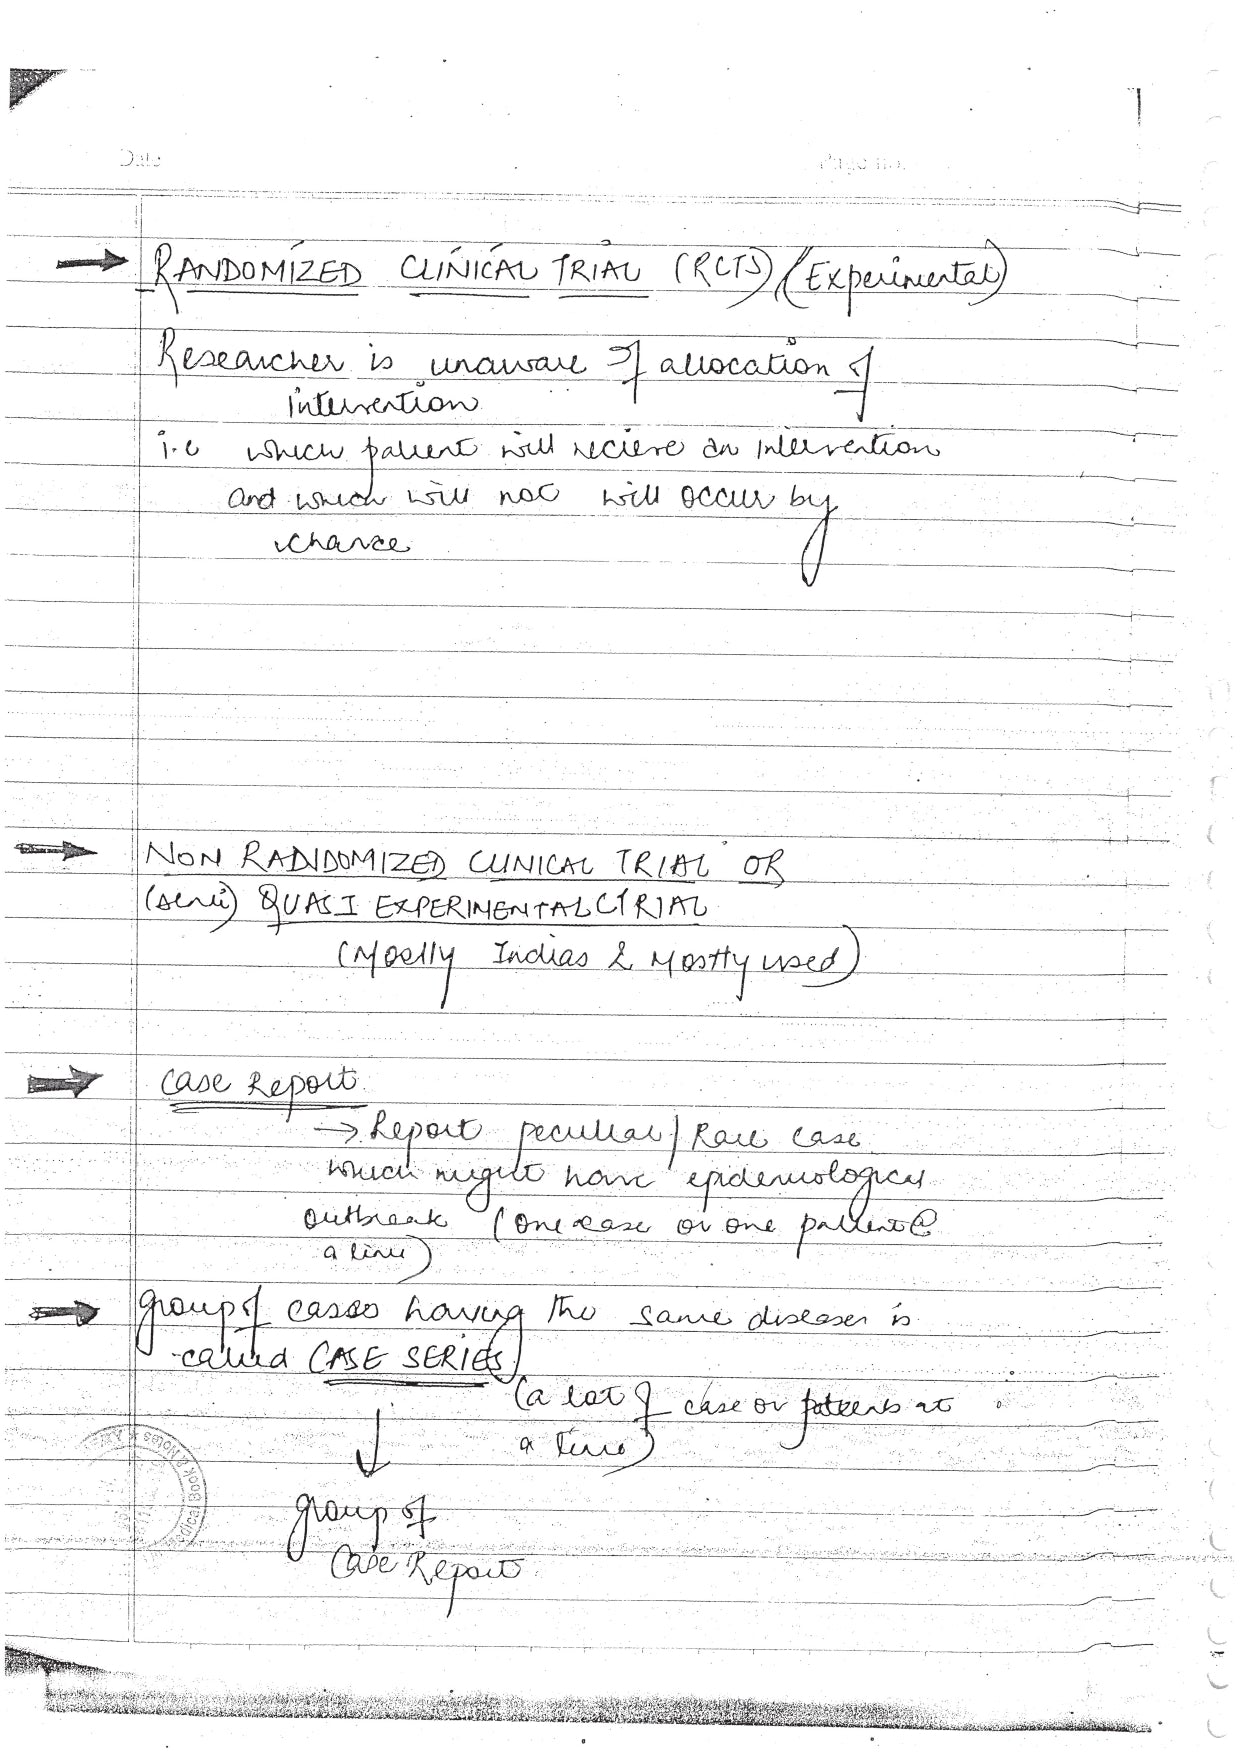 Date
Page no.
RANDOMIZED CLINICAL TRIAL (RCTS) / (Experimental)
Researcher is unaware of allocation of
intervention
i.e which patient will recieve an intervention
and which will not will occur by
chance
NON RADIDOMIZED CLINICAL TRIAL OR
(semi) QUASI EXPERIMENTAL TRIAL
(Mostly Indias & Mostly used)
Case Report
→ Report peculiar / Rare case
which might have epidemiological
outbreak (one case or one patient @
a time)
group of cases having the same diseases is
called CASE SERIES
(a lot of case or patients at
a time)
↓
group of
Case Report
edical Book House